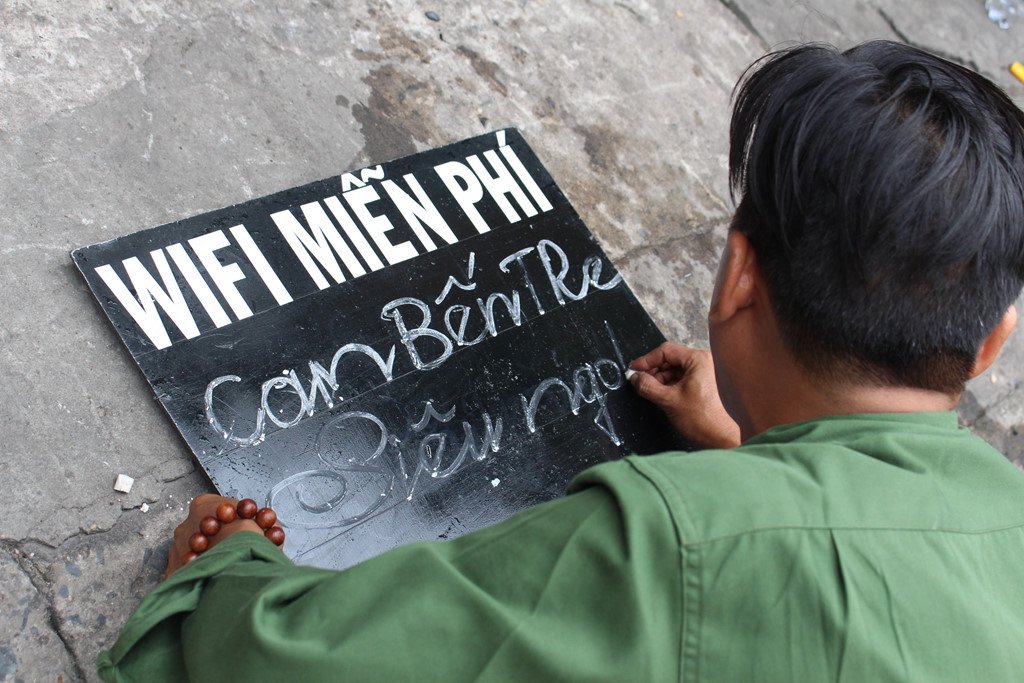 WIFI MIỄN PHÍ
Cam Bến TRe
Siêu ngo